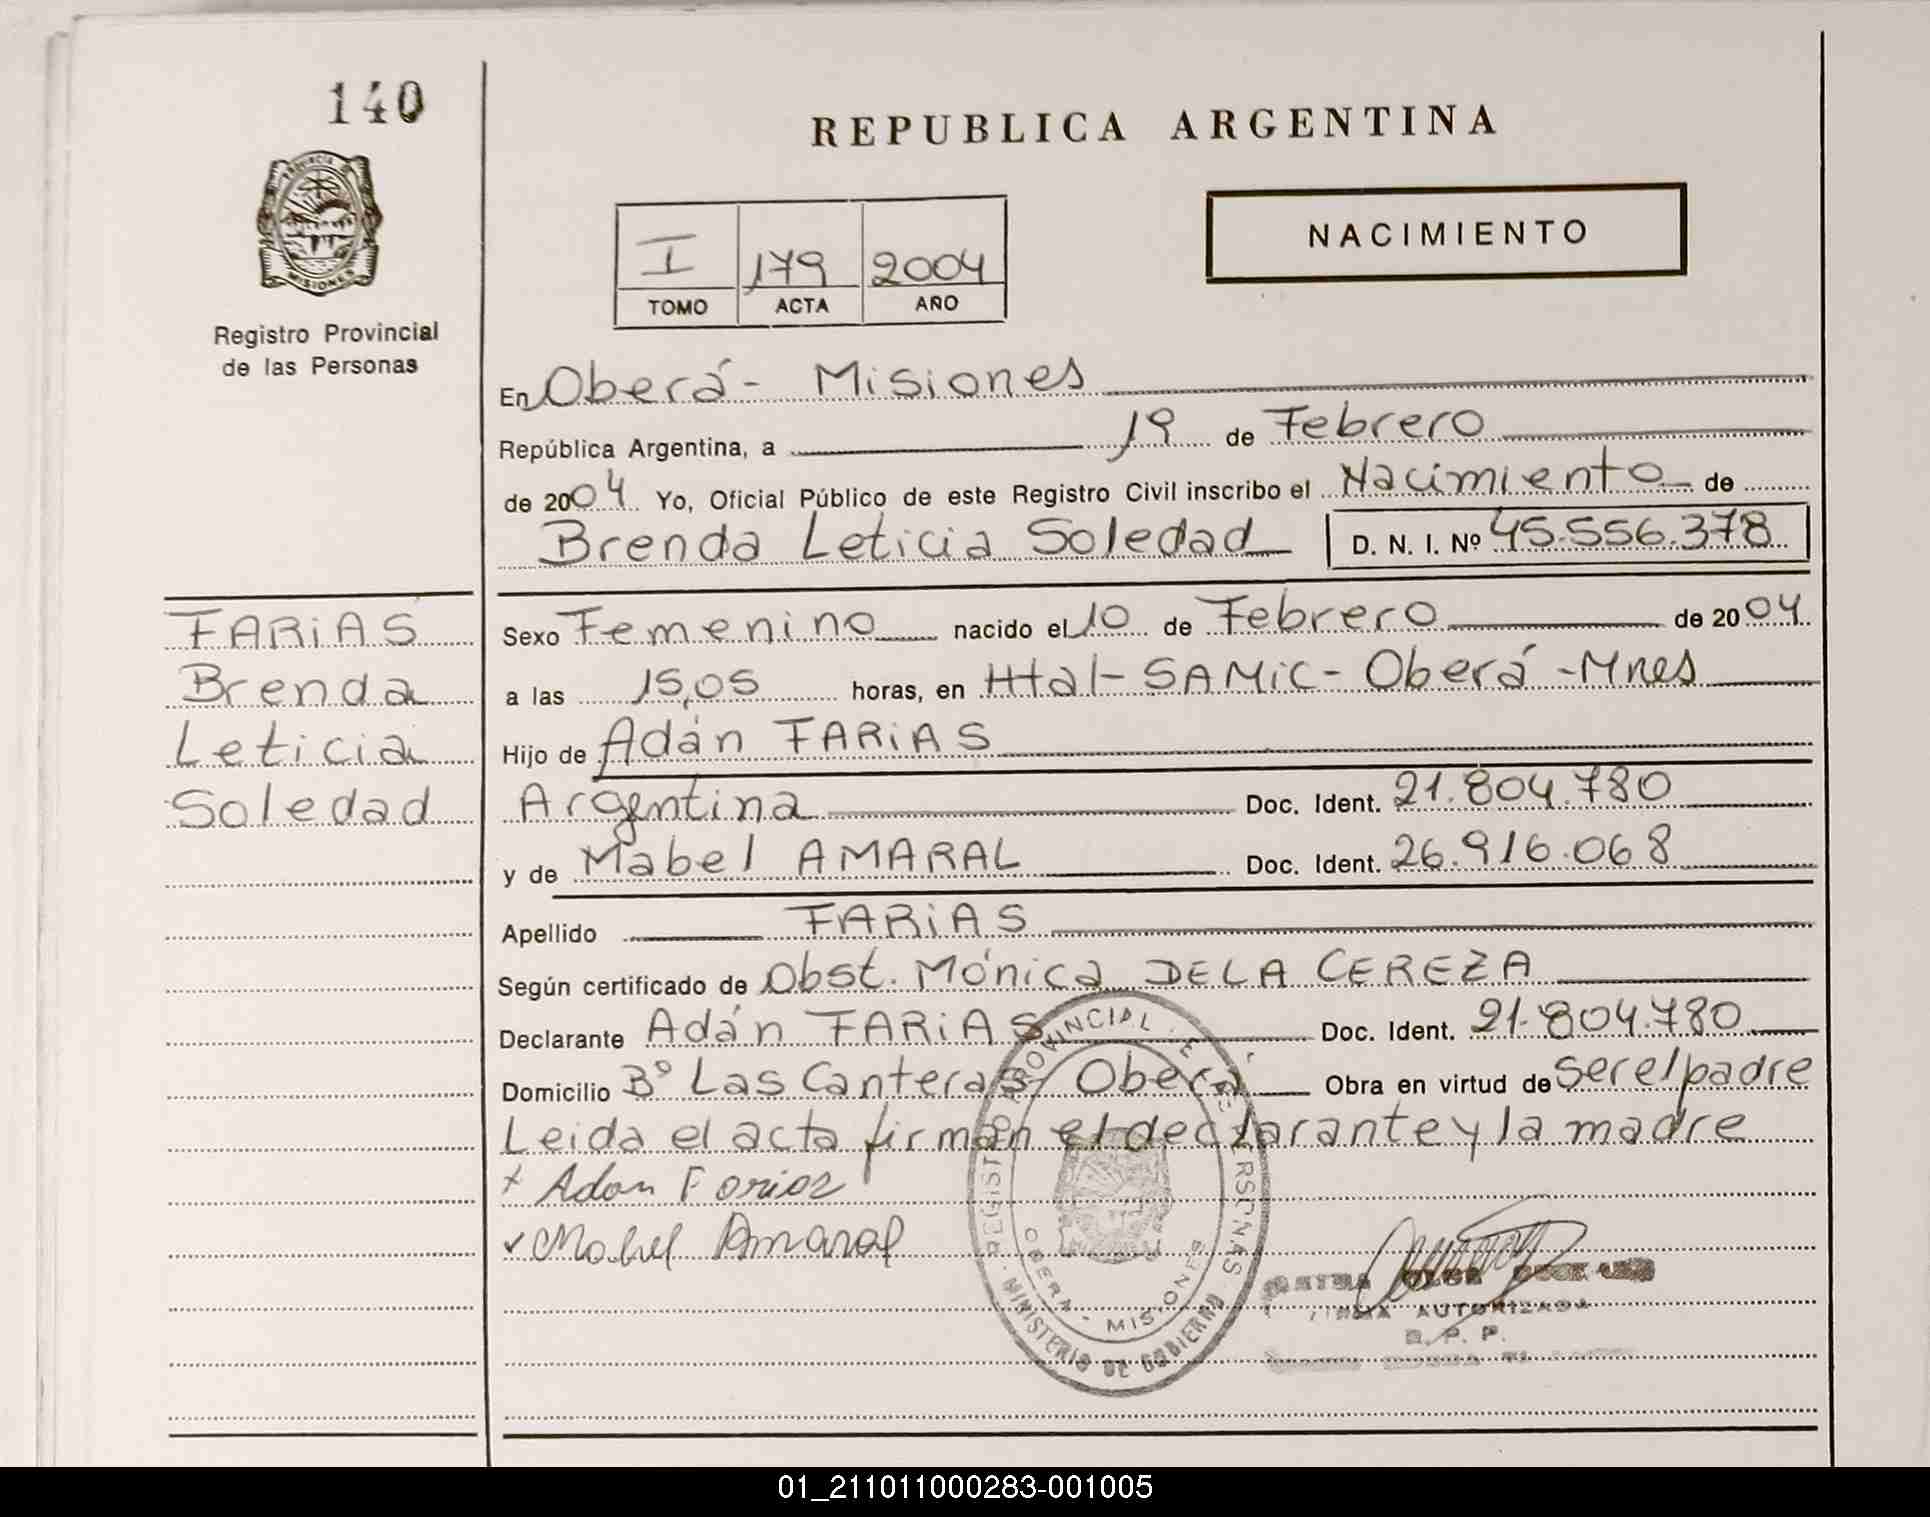 140
PROVINCIA DE
MISIONES
Registro Provincial
de las Personas
REPUBLICA ARGENTINA
NACIMIENTO
I 179 2004
TOMO ACTA AÑO
En Oberá - Misiones
República Argentina, a 19 de Febrero
de 2004 Yo, Oficial Público de este Registro Civil inscribo el Nacimiento de
Brenda Leticia Soledad D. N. I. Nº 45.556.378
FARiAS
Brenda
Leticia
Soledad
Sexo Femenino nacido el 10 de Febrero de 2004
a las 15,05 horas, en Htal - SAMiC - Oberá - Mnes
Hijo de Adán FARiAS
Argentina Doc. Ident. 21.804.780
y de Mabel AMARAL Doc. Ident. 26.916.068
Apellido FARiAS
Según certificado de Obst. Mónica DE LA CEREZA
Declarante Adán FARiAS Doc. Ident. 21.804.780
Domicilio Bº Las Canteras Oberá Obra en virtud de ser el padre
Leida el acta firman el declarante y la madre
x Adan Farias
Mabel Amaral
REGISTRO PROVINCIAL DE LAS PERSONAS
OBERA - MISIONES
MINISTERIO DE GOBIERNO
OLGA
FIRMA AUTORIZADA
R. P. P.
01_211011000283-001005